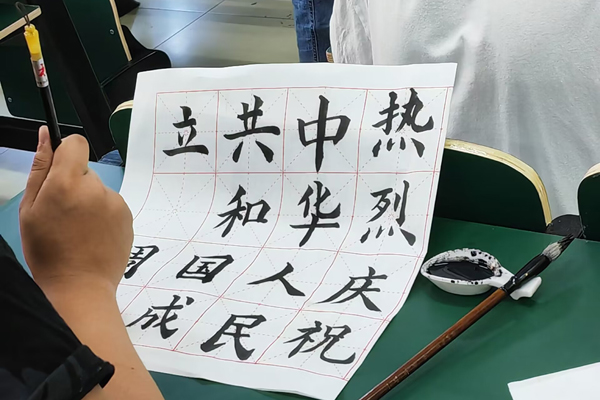 热烈庆祝
中华人民
共和国成
立 周